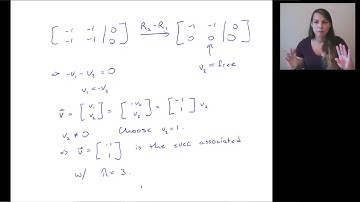 [ -1 -1 | 0 ; -1 -1 | 0 ] R₂-R₁ → [ -1 -1 | 0 ; 0 0 | 0 ]
v₂ = free
⇒ -v₁ - v₂ = 0
v₁ = -v₂
v⃗ = [ v₁ ; v₂ ] = [ -v₂ ; v₂ ] = [ -1 ; 1 ] v₂
v₂ ≠ 0 Choose v₂ = 1.
⇒ v⃗ = [ -1 ; 1 ] is the evec associated
w/ λ = 3.